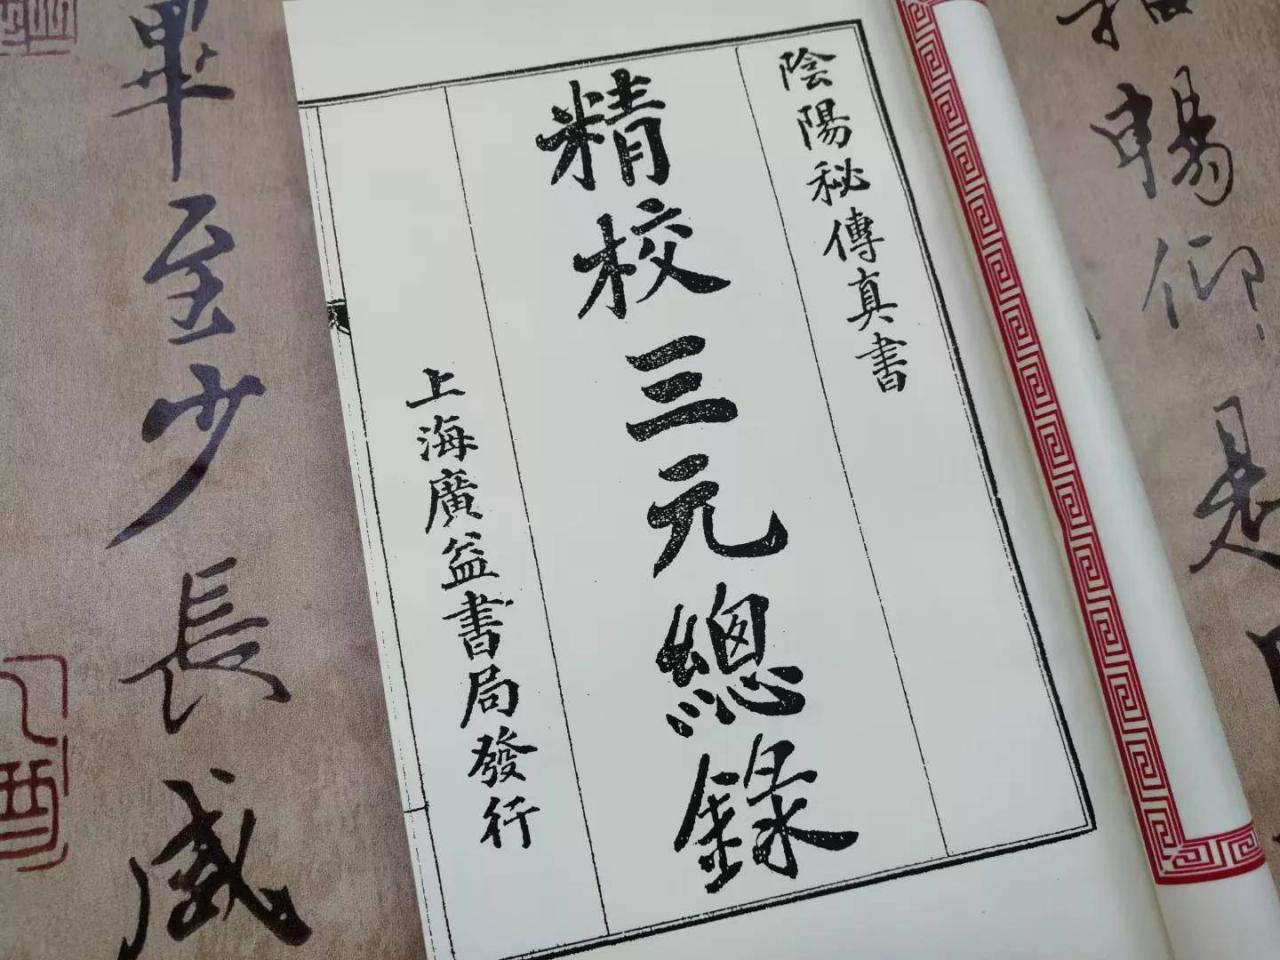 陰陽秘傳真書
精校三元總錄
上海廣益書局發行
暢仰
是
畢至少長咸
酉